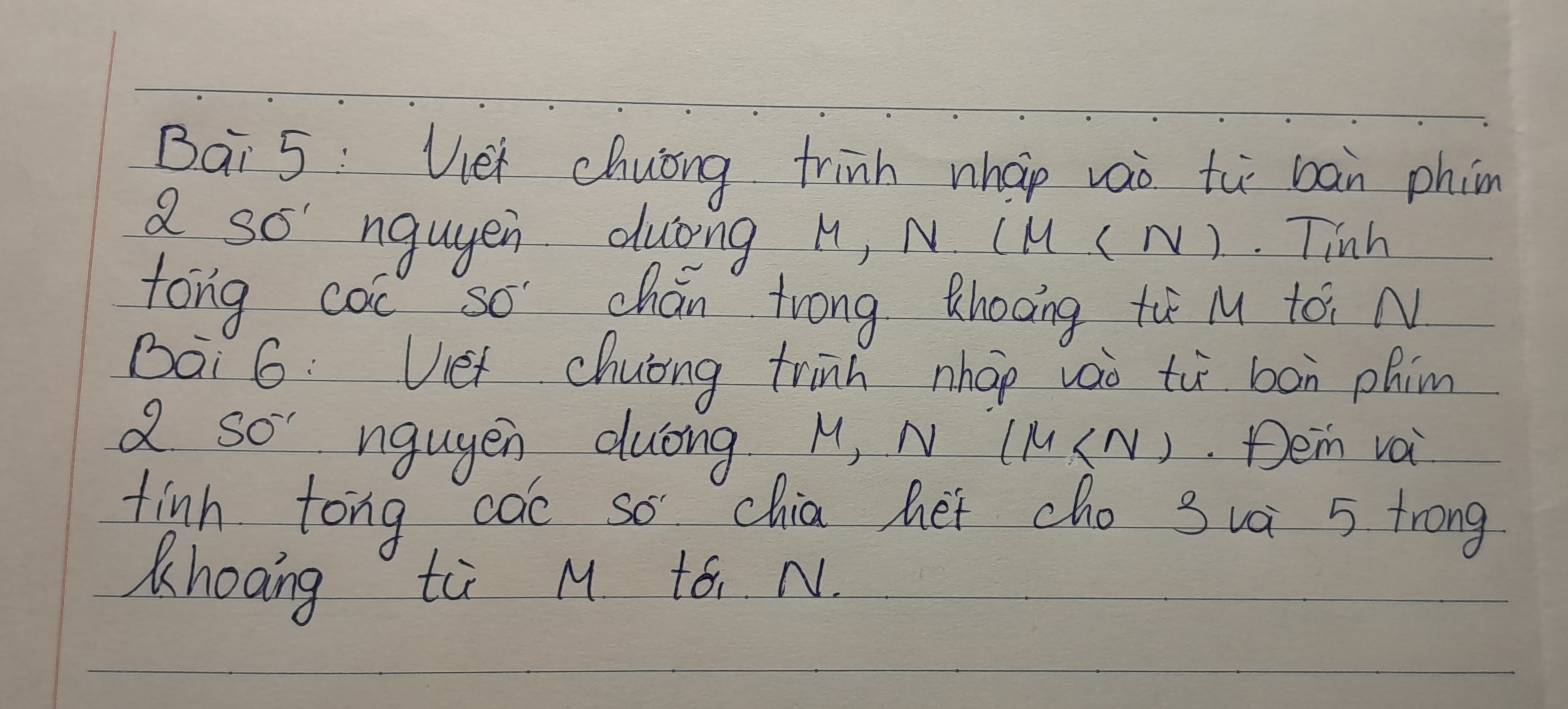 Bài 5: Viết chương trình nhập vào từ bàn phím
2 số nguyên dương M, N (M < N). Tính
tổng các số chẵn trong khoảng từ M tới N
Bài 6: Viết chương trình nhập vào từ bàn phím
2 số nguyên dương M, N (M < N). Đếm và
tính tổng các số chia hết cho 3 và 5 trong
khoảng từ M tới N.